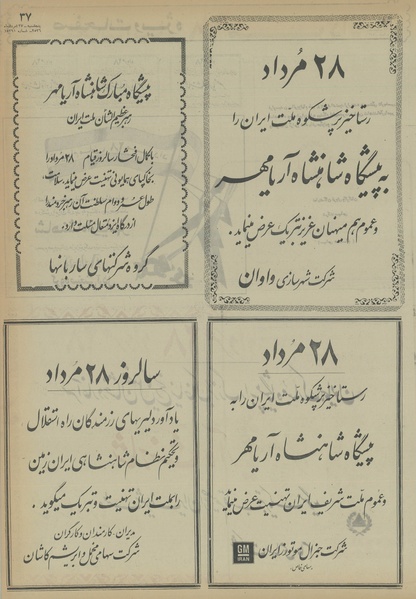 ۳۷
۲۸ مُرداد
رستاخیز پرشکوه ملت ایران را
به پیشگاه شاهنشاه آریامهر
و عموم هم میهنان عزیز تبریک عرض مینماید.
شرکت شهرسازی واوان
پیشگاه مبارک شاهنشاه آریامهر
رهبر عظیم الشان ملت ایران
با کمال افتخار سالروز قیام ۲۸ مرداد را
بخاکپای همایونی تهنیت عرض نموده سلامت
طول عمر و دوام سلطنت آن رهبر خردمند را
از درگاه ایزد متعال مسئلت دارد.
گروه شرکتهای ساربانها
۲۸ مُرداد
رستاخیز پرشکوه ملت ایران را به
پیشگاه شاهنشاه آریامهر
و عموم ملت شریف ایران تهنیت عرض مینماید
شرکت جنرال موتورز ایران
GM
IRAN
سالروز ۲۸ مُرداد
یادآور دلیریهای رزمندگان راه استقلال
و تحکیم نظام شاهنشاهی ایران زمین
را بملت ایران تهنیت و تبریک میگوید.
مدیران، کارمندان و کارگران
شرکت سهامی مخمل و ابریشم کاشان